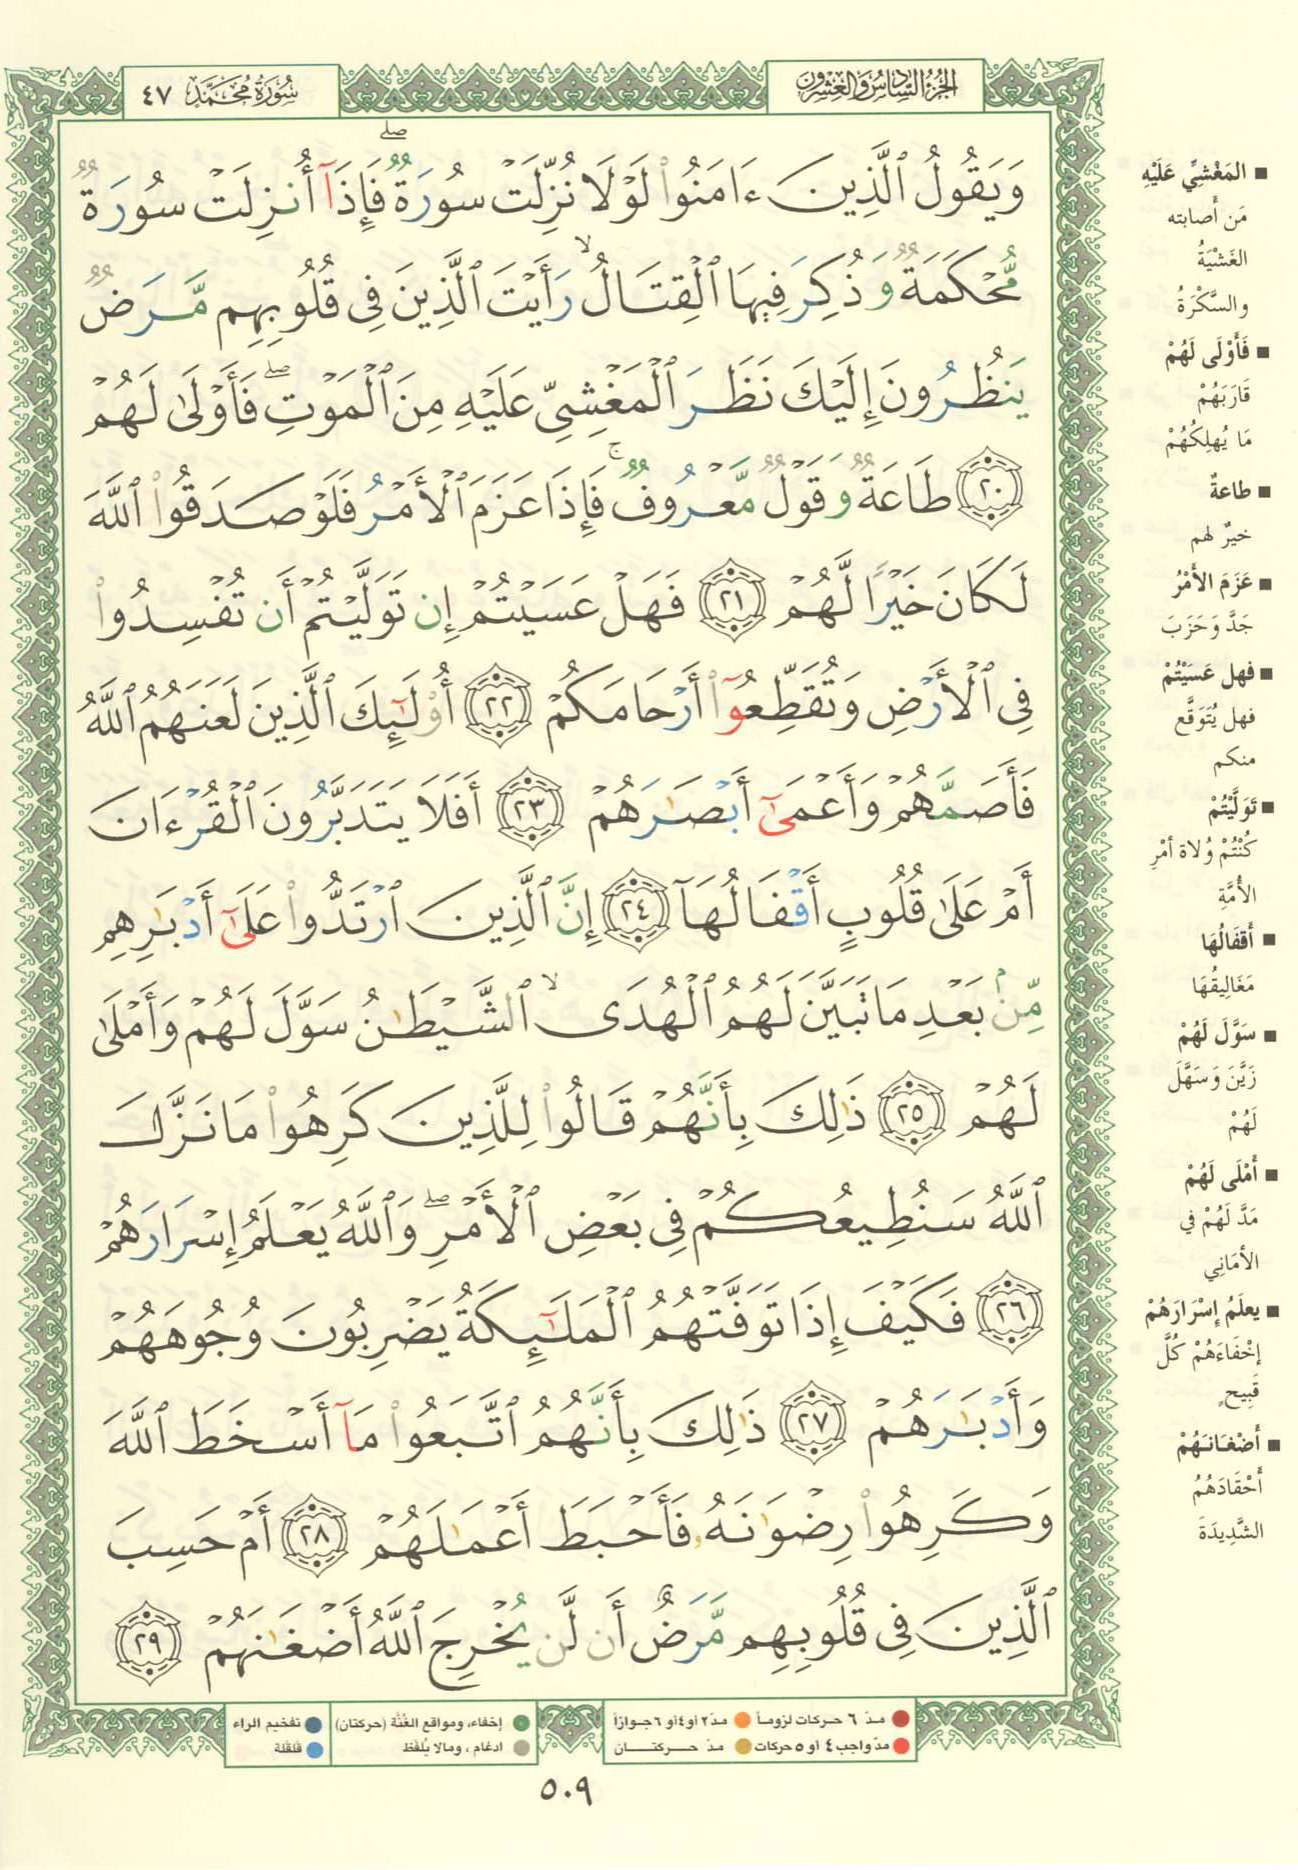 الجزء السادس والعشرون
سورة محمد ٤٧
وَيَقُولُ ٱلَّذِينَ ءَامَنُوا۟ لَوْلَا نُزِّلَتْ سُورَةٌ ۖ فَإِذَآ أُنزِلَتْ سُورَةٌ
مُّحْكَمَةٌ وَذُكِرَ فِيهَا ٱلْقِتَالُ ۙ رَأَيْتَ ٱلَّذِينَ فِى قُلُوبِهِم مَّرَضٌ
يَنظُرُونَ إِلَيْكَ نَظَرَ ٱلْمَغْشِىِّ عَلَيْهِ مِنَ ٱلْمَوْتِ ۖ فَأَوْلَىٰ لَهُمْ
٢٠ طَاعَةٌ وَقَوْلٌ مَّعْرُوفٌ ۚ فَإِذَا عَزَمَ ٱلْأَمْرُ فَلَوْ صَدَقُوا۟ ٱللَّهَ
لَكَانَ خَيْرًا لَّهُمْ ٢١ فَهَلْ عَسَيْتُمْ إِن تَوَلَّيْتُمْ أَن تُفْسِدُوا۟
فِى ٱلْأَرْضِ وَتُقَطِّعُوٓا۟ أَرْحَامَكُمْ ٢٢ أُو۟لَٰٓئِكَ ٱلَّذِينَ لَعَنَهُمُ ٱللَّهُ
فَأَصَمَّهُمْ وَأَعْمَىٰٓ أَبْصَٰرَهُمْ ٢٣ أَفَلَا يَتَدَبَّرُونَ ٱلْقُرْءَانَ
أَمْ عَلَىٰ قُلُوبٍ أَقْفَالُهَآ ٢٤ إِنَّ ٱلَّذِينَ ٱرْتَدُّوا۟ عَلَىٰٓ أَدْبَٰرِهِم
مِّنۢ بَعْدِ مَا تَبَيَّنَ لَهُمُ ٱلْهُدَى ۙ ٱلشَّيْطَٰنُ سَوَّلَ لَهُمْ وَأَمْلَىٰ
لَهُمْ ٢٥ ذَٰلِكَ بِأَنَّهُمْ قَالُوا۟ لِلَّذِينَ كَرِهُوا۟ مَا نَزَّلَ
ٱللَّهُ سَنُطِيعُكُمْ فِى بَعْضِ ٱلْأَمْرِ ۖ وَٱللَّهُ يَعْلَمُ إِسْرَارَهُمْ
٢٦ فَكَيْفَ إِذَا تَوَفَّتْهُمُ ٱلْمَلَٰٓئِكَةُ يَضْرِبُونَ وُجُوهَهُمْ
وَأَدْبَٰرَهُمْ ٢٧ ذَٰلِكَ بِأَنَّهُمُ ٱتَّبَعُوا۟ مَآ أَسْخَطَ ٱللَّهَ
وَكَرِهُوا۟ رِضْوَٰنَهُۥ فَأَحْبَطَ أَعْمَٰلَهُمْ ٢٨ أَمْ حَسِبَ
ٱلَّذِينَ فِى قُلُوبِهِم مَّرَضٌ أَن لَّن يُخْرِجَ ٱللَّهُ أَضْغَٰنَهُمْ ٢٩
■ المَغْشِيِّ عَلَيْهِ
مَن أَصابته
الغَشْيَةُ
والسَّكْرَةُ
■ فَأَوْلَى لَهُمْ
قَارَبَهُمْ
مَا يُهلِكُهُمْ
■ طاعةٌ
خيرٌ لهم
■ عَزَمَ الأَمْرُ
جَدَّ وَحَزَبَ
■ فهل عَسَيْتُمْ
فهل يُتَوَقَّع
منكم
■ تَوَلَّيْتُمْ
كُنْتُمْ وُلاة أمْرِ
الأُمَّةِ
■ أَقفَالُهَا
مَغَالِيقُهَا
■ سَوَّلَ لَهُمْ
زَيَّنَ وَسَهَّلَ
لَهُمْ
■ أَمْلَى لَهُمْ
مَدَّ لَهُمْ في
الأمَانِي
■ يعلَمُ إِسْرَارَهُمْ
إخْفَاءَهُمْ كُلَّ
قَبِيحٍ
■ أَضْغَانَهُمْ
أَحْقَادَهُمُ
الشَّدِيدَةَ
مدّ ٦ حركات لزوماً
مدّ ٢ أو ٤ أو ٦ جوازاً
مدّ واجب ٤ أو ٥ حركات
مدّ حركتان
إخفاء، ومواقع الغُنَّة (حركتان)
ادغام ، ومالا يُلفَظ
تفخيم الراء
قلقلة
٥٠٩